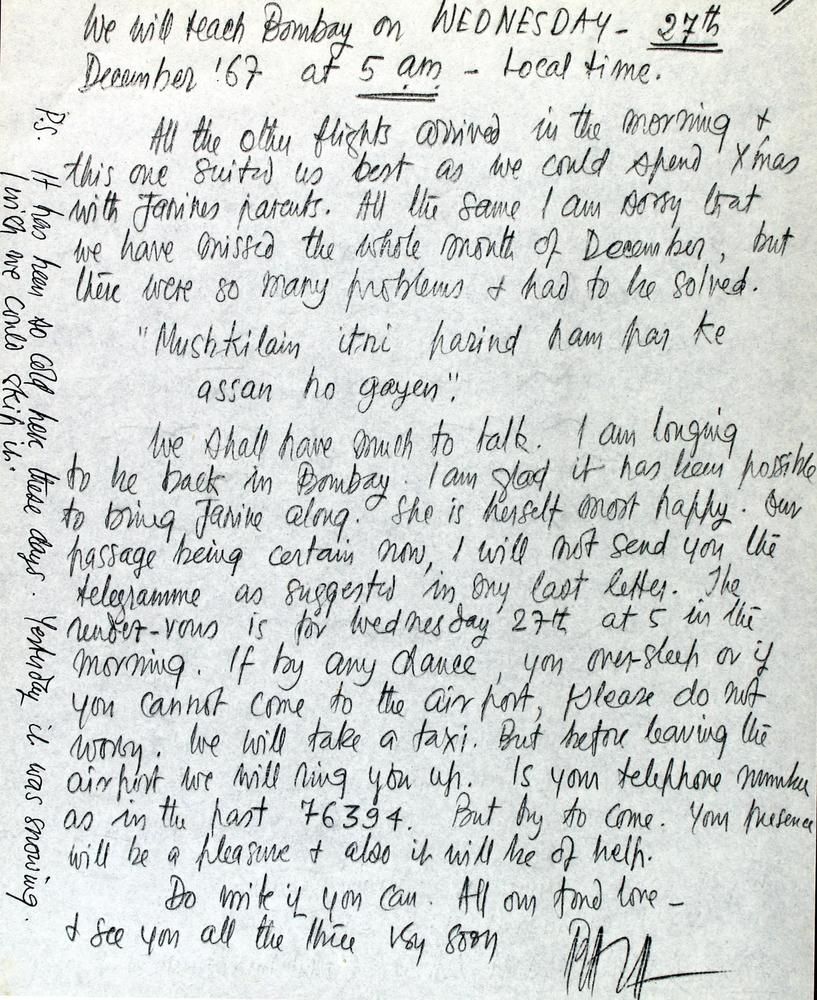 We will reach Bombay on WEDNESDAY - 27th
December '67 at 5 am - Local time.
All the other flights arrived in the morning &
this one suited us best as we could spend X'mas
with Janines parents. All the same I am sorry that
we have missed the whole month of December, but
there were so many problems & had to be solved.
"Mushkilain itni parind ham par ke
assan ho gayen".
We shall have much to talk. I am longing
to be back in Bombay. I am glad it has been possible
to bring Janine along. She is herself most happy. Our
passage being certain now, I will not send you the
telegramme as suggested in my last letter. The
rendez-vous is for Wednesday 27th at 5 in the
morning. If by any chance, you over-sleep or if
you cannot come to the airport, please do not
worry. We will take a taxi. But before leaving the
airport we will ring you up. Is your telephone number
as in the past 76394. But try to come. Your presence
will be a pleasure & also it will be of help.
Do write if you can. All our fond love -
& see you all the three very soon
P.S. It has been so cold here these days. Yesterday it was snowing.
I wish we could skip it.